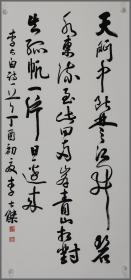 天門中断楚江開碧
水東流至此回兩岸青山相對
出孤帆一片日邊來
李太白詩丁酉初夏李士傑